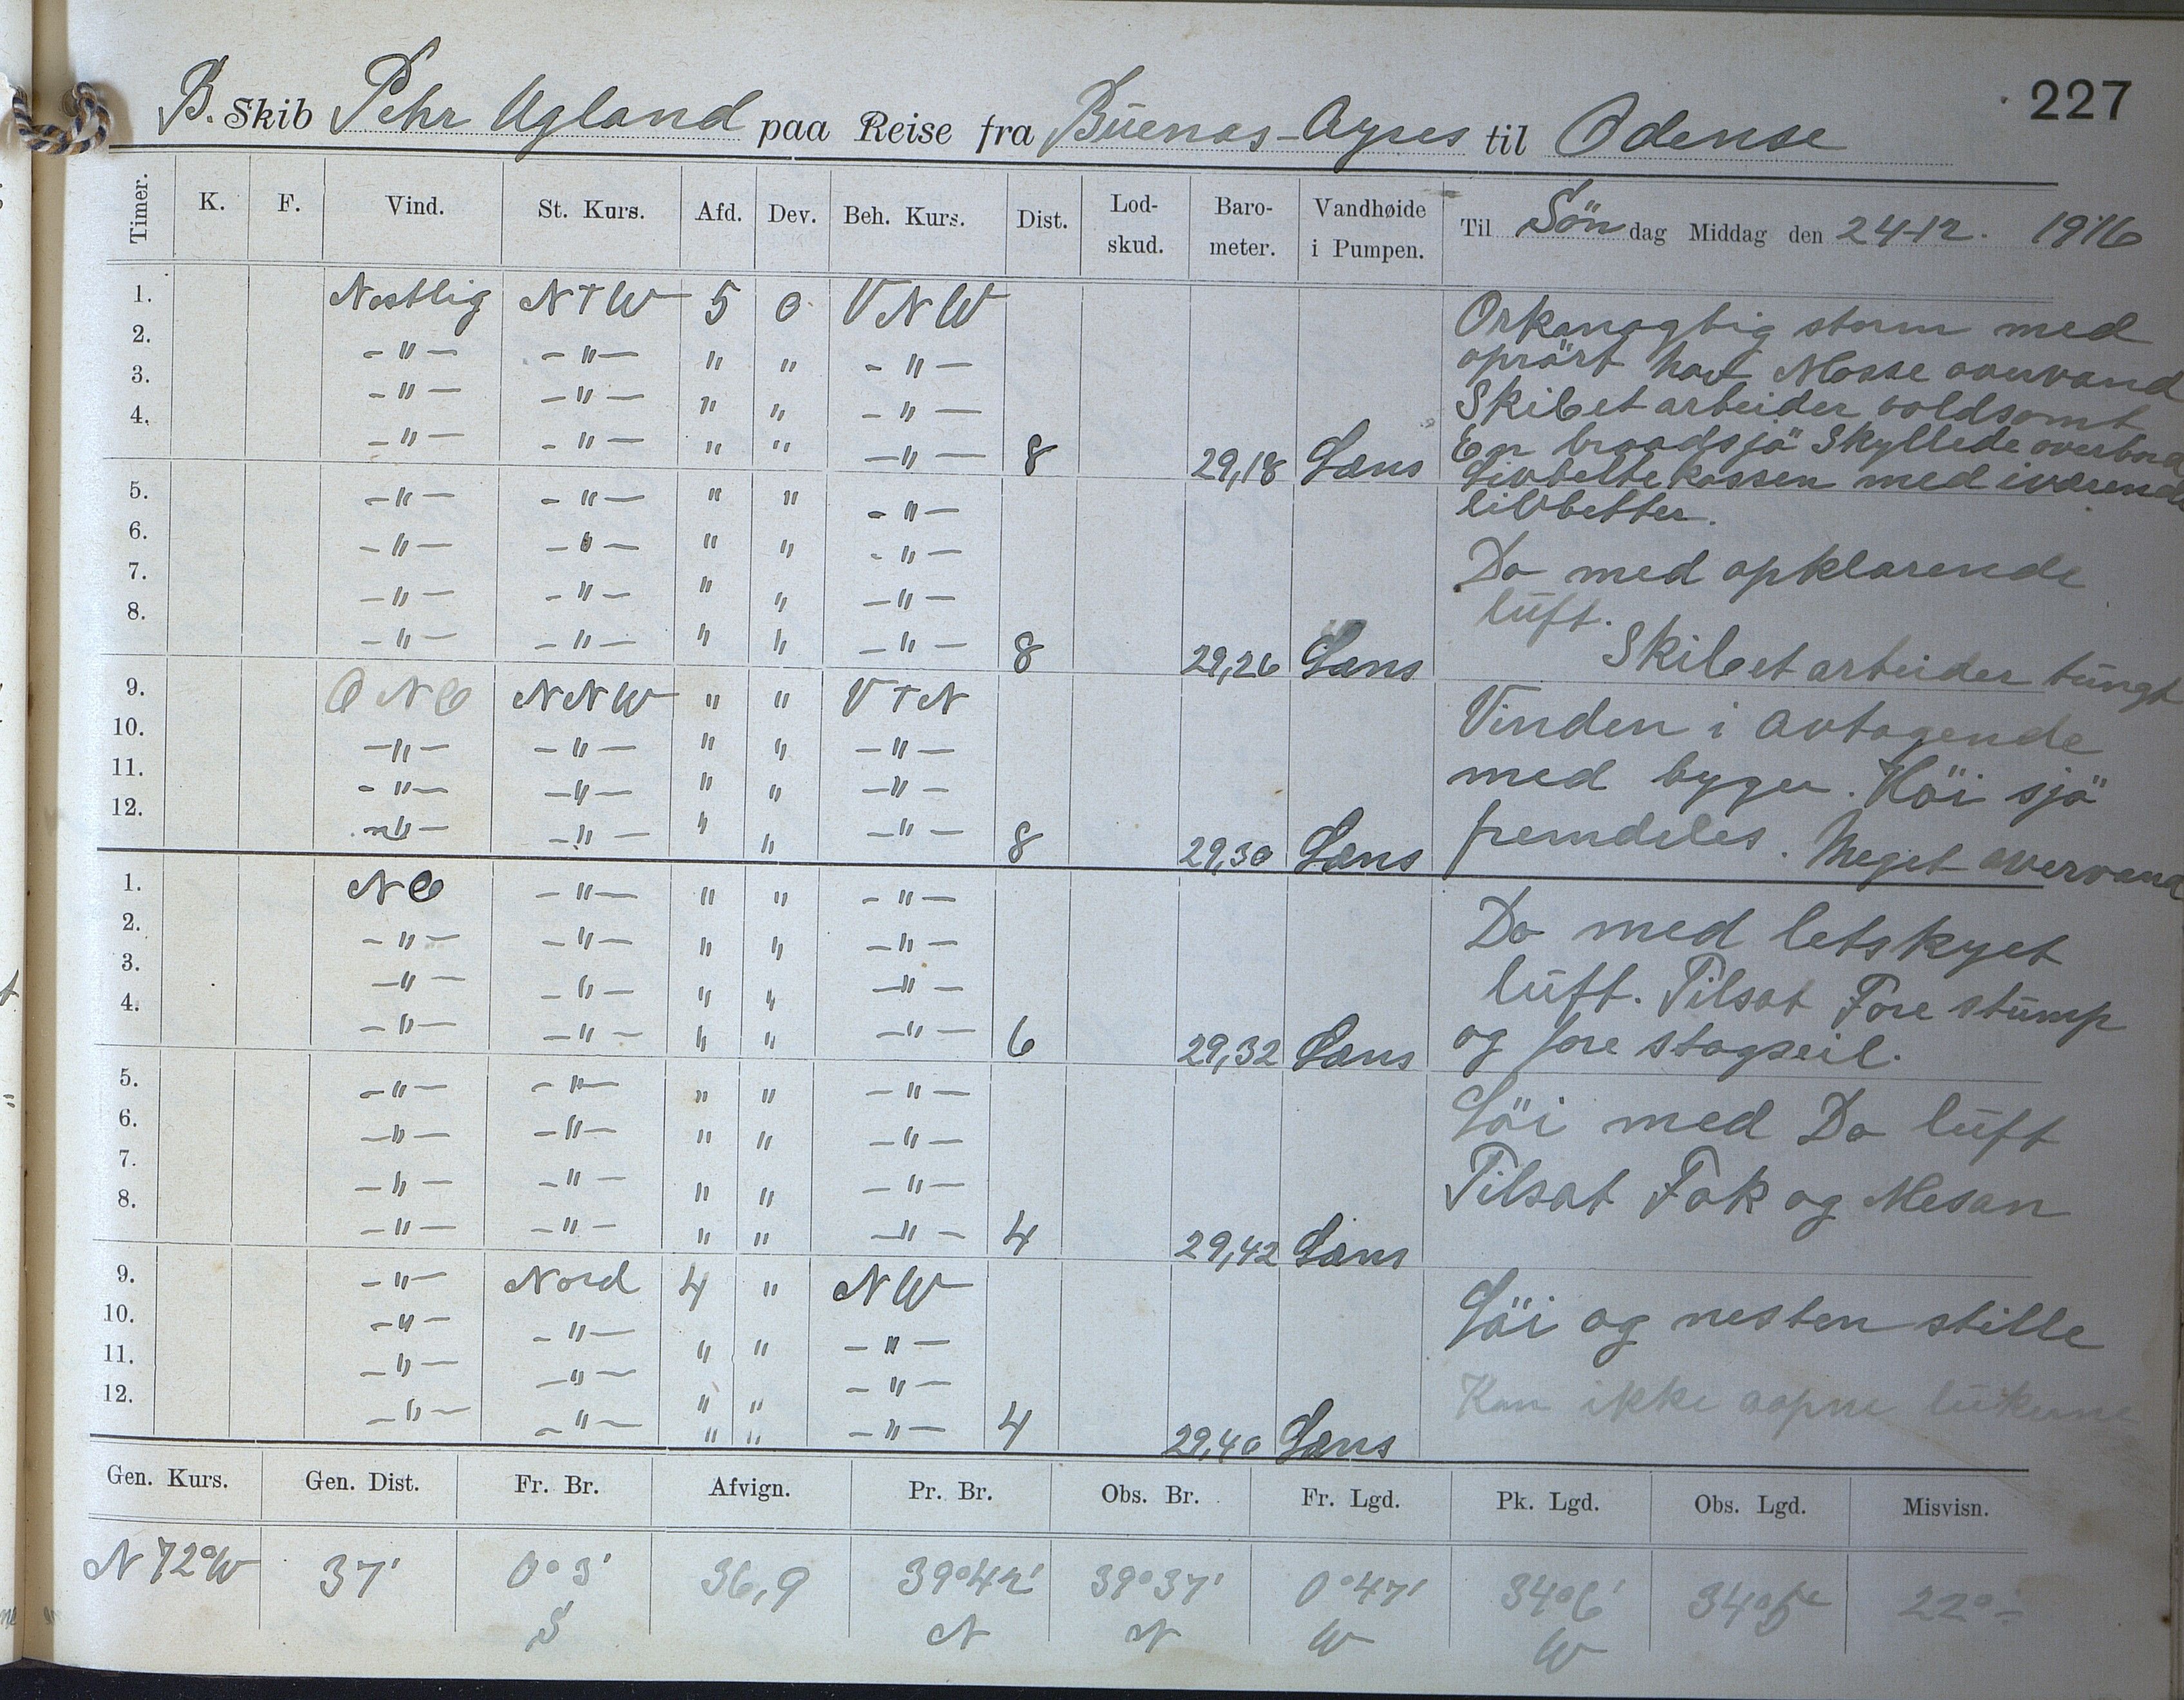 227
B. Skib Pehr Ugland paa Reise fra Buenos-Ayres til Odense
Timer. K. F. Vind. St. Kurs. Afd. Dev. Beh. Kurs. Dist. Lod-skud. Baro-meter. Vandhøide i Pumpen. Til Søndag Middag den 24-12. 1916
1. Nostlig NTW 5 0 VNW Orkanagtig storm med
2. -"- -"- " " -"- oprört hav Masse overvand
3. -"- -"- " " -"- Skibet arbeider voldsomt
4. -"- -"- " " -"- 8 29,18 Læns En braadsjö Skyllede overbord
Livbelte kassen med iværende
5. -"- -"- " " -"- livbelter.
6. -"- -"- " " -"- Do med opklarende
7. -"- -"- " " -"- luft.
8. -"- -"- " " -"- 8 29,26 Læns Skibet arbeider tungt
9. ONO NNW " " VTN Vinden i avtagende
10. -"- -"- " " -"- med byger. Höi sjö
11. -"- -"- " " -"-
12. -"- -"- " " -"- 8 29,30 Læns fremdeles. Meget overvand
1. NO -"- " " -"- Do med letskyet
2. -"- -"- " " -"-
3. -"- -"- " " -"- luft. Tilsat Fore stump
4. -"- -"- " " -"- 6 29,32 Læns og fore stagseil.
5. -"- -"- " " -"- Löi med Do luft
6. -"- -"- " " -"-
7. -"- -"- " " -"- Tilsat Fok og Mesan
8. -"- -"- " " -"- 4 29,42 Læns
9. -"- Nord 4 " NW Löi og nesten stille
10. -"- -"- " " -"-
11. -"- -"- " " -"- Kan ikke aapne lukerne
12. -"- -"- " " -"- 4 29,40 Læns
Gen. Kurs. Gen. Dist. Fr. Br. Afvign. Pr. Br. Obs. Br. Fr. Lgd. Pk. Lgd. Obs. Lgd. Misvisn.
N 72° W 37' 0° 3' 36,9 39° 42' 39° 37' 0° 47' 34° 6' 22°
S N N W W